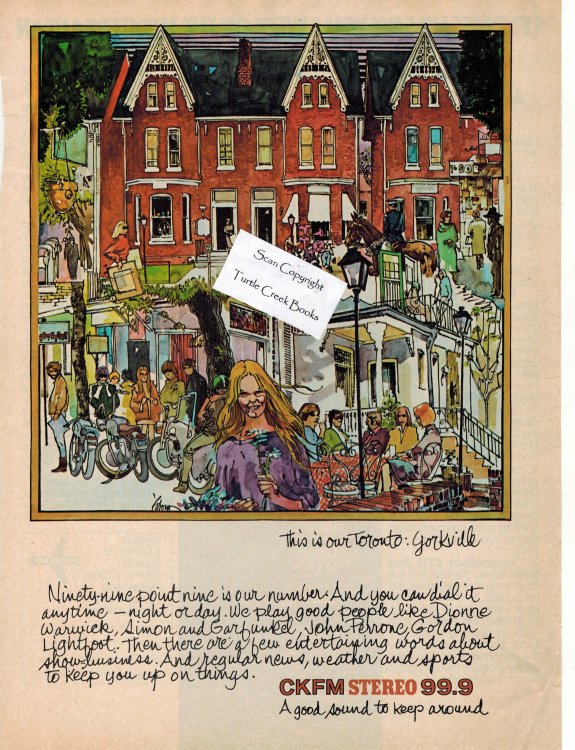 Scan Copyright
Turtle Creek Books
This is our Toronto: Yorkville
Ninety-nine point nine is our number. And you can dial it
anytime – night or day. We play good people like Dionne
Warwick, Simon and Garfunkel, John Perrone, Gordon
Lightfoot. Then there are a few entertaining words about
show-business. And regular news, weather and sports
to keep you up on things.
CKFM STEREO 99.9
A good sound to keep around